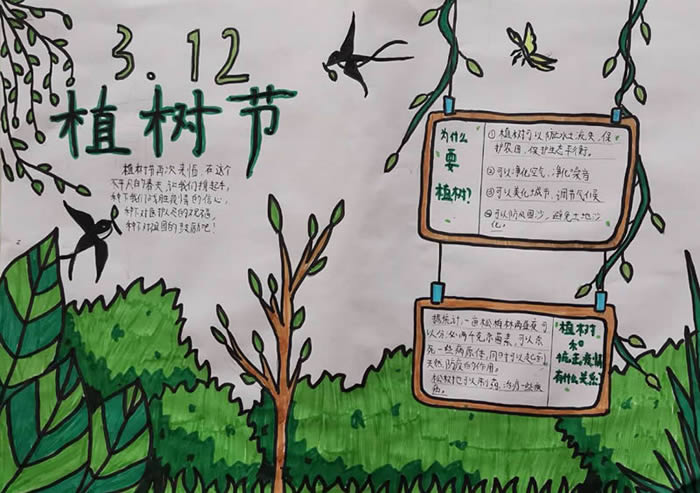 3.12
植树节
植树节再次来临，在这个
不平凡的春天，让我们携起手，
种下我们战胜疫情的信心，
种下对医护人员的祝福，
种下对祖国的鼓励吧！
为什么
要
植树？
①植树可以防止水土流失，保
护农田，保护生态平衡。
②可以净化空气，净化噪音
③可以美化城市，调节气候
④可以防风固沙，避免土地沙
化。
据统计，一亩松柏林两昼夜可
以分泌两千克杀菌素，可以杀
死一些病原体，同时可以起到
天然防疫的作用。
松树也可以制药，治疗一些疾
病。
植树
和
抗击疫情
有什么关系？